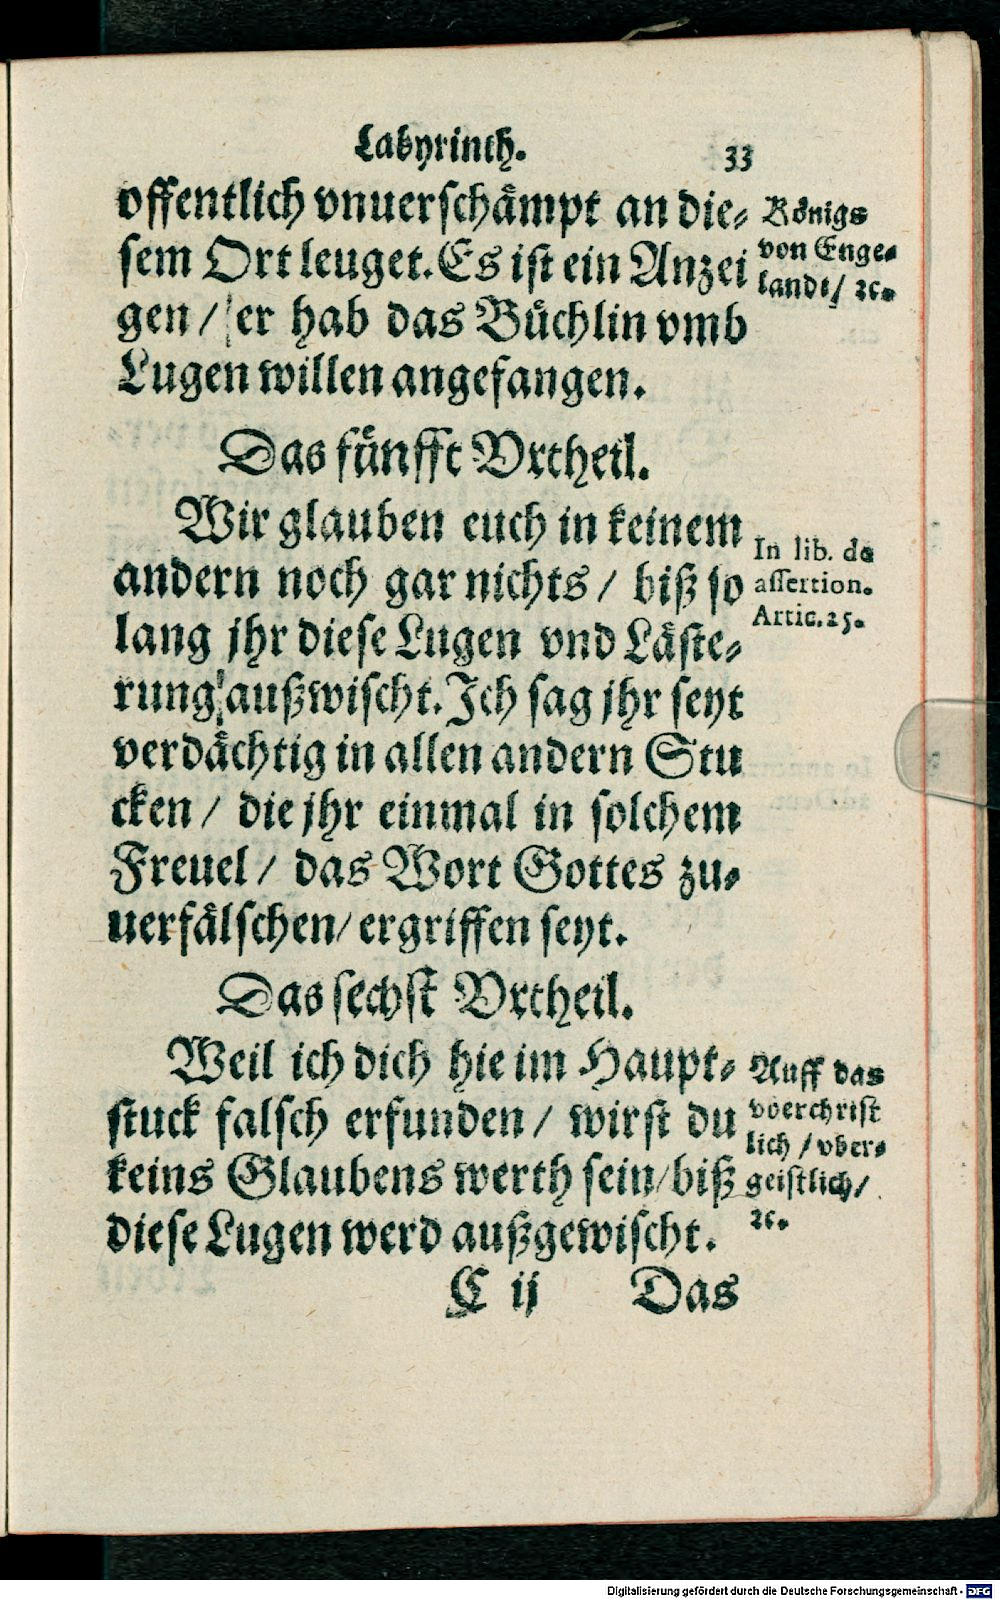 Labyrinth. 33
offentlich vnuerschämpt an die⸗
sem Ort leuget. Es ist ein Anzei
gen / er hab das Büchlin vmb
Lugen willen angefangen.
Königs
von Enge⸗
landt / ꝛc.
Das fünfft Vrtheil.
Wir glauben euch in keinem
andern noch gar nichts / biß so
lang jhr diese Lugen vnd Läste⸗
rung außwischt. Ich sag jhr seyt
verdächtig in allen andern Stu
cken / die jhr einmal in solchem
Freuel / das Wort Gottes zu⸗
uerfälschen / ergriffen seyt.
In lib. de
assertion.
Artic. 25.
Das sechst Vrtheil.
Weil ich dich hie im Haupt⸗
stuck falsch erfunden / wirst du
keins Glaubens werth sein / biß
diese Lugen werd außgewischt.
Auff das
voerchrist
lich / vber⸗
geistlich /
ꝛc.
C ij Das
Digitalisierung gefördert durch die Deutsche Forschungsgemeinschaft - DFG